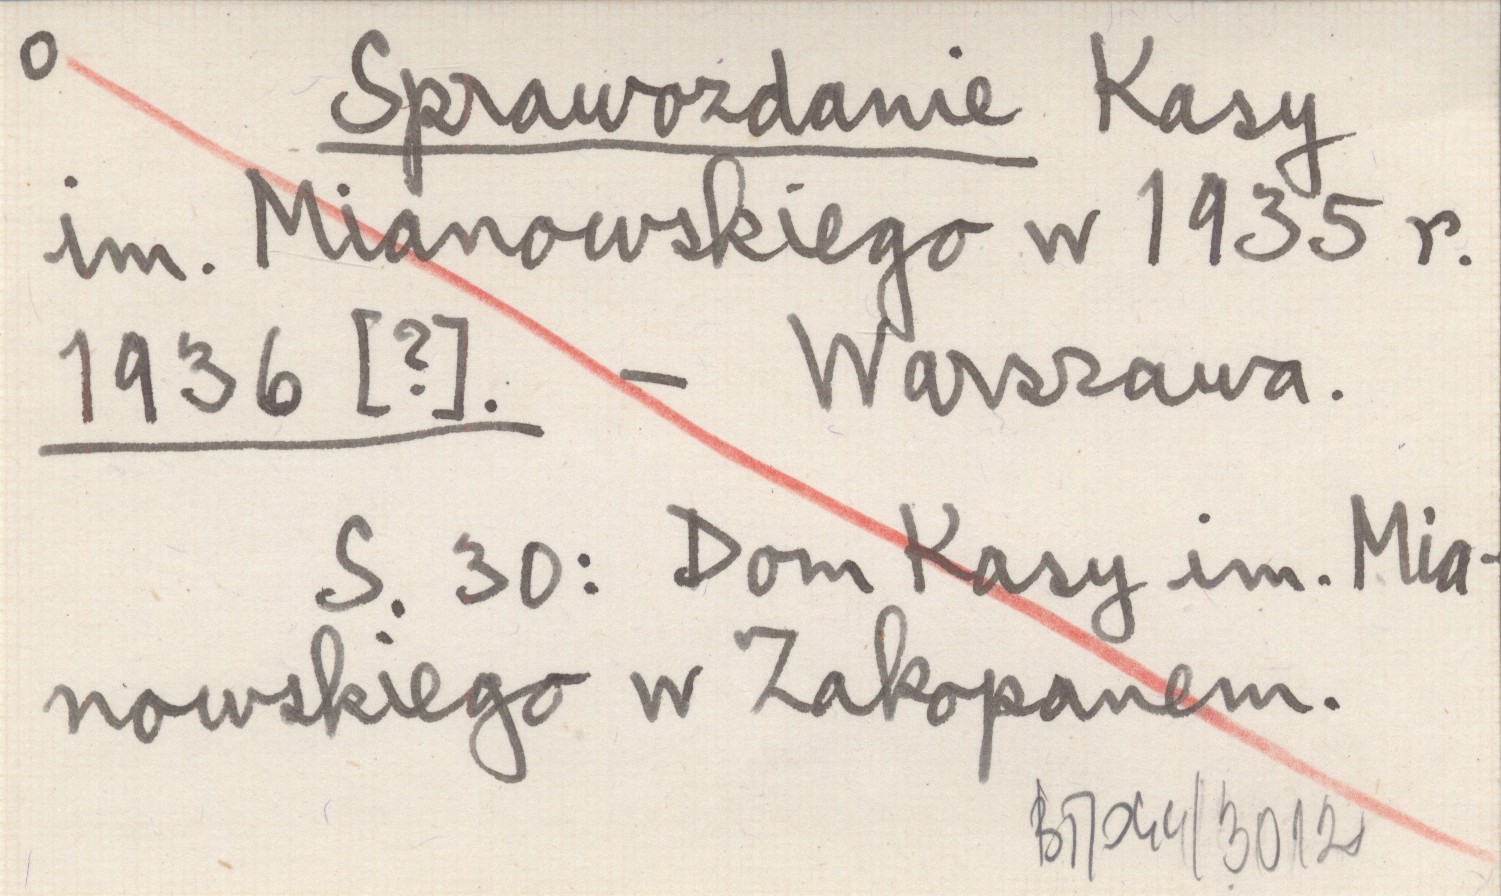 o Sprawozdanie Kasy
im. Mianowskiego w 1935 r.
1936 [?]. – Warszawa.
S. 30: Dom Kasy im. Mia-
nowskiego w Zakopanem.
3012